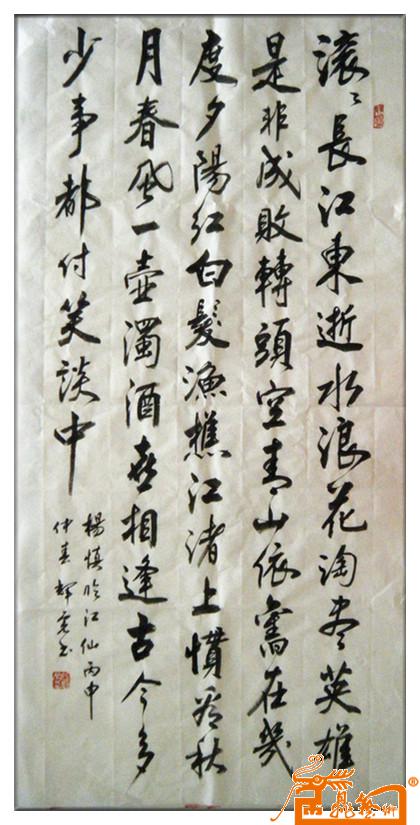 滚〻長江東逝水浪花淘盡英雄
是非成敗轉頭空青山依舊在幾
度夕陽紅白髮漁樵江渚上慣看秋
月春風一壺濁酒喜相逢古今多
少事都付笑談中
楊慎臨江仙丙申
仲春